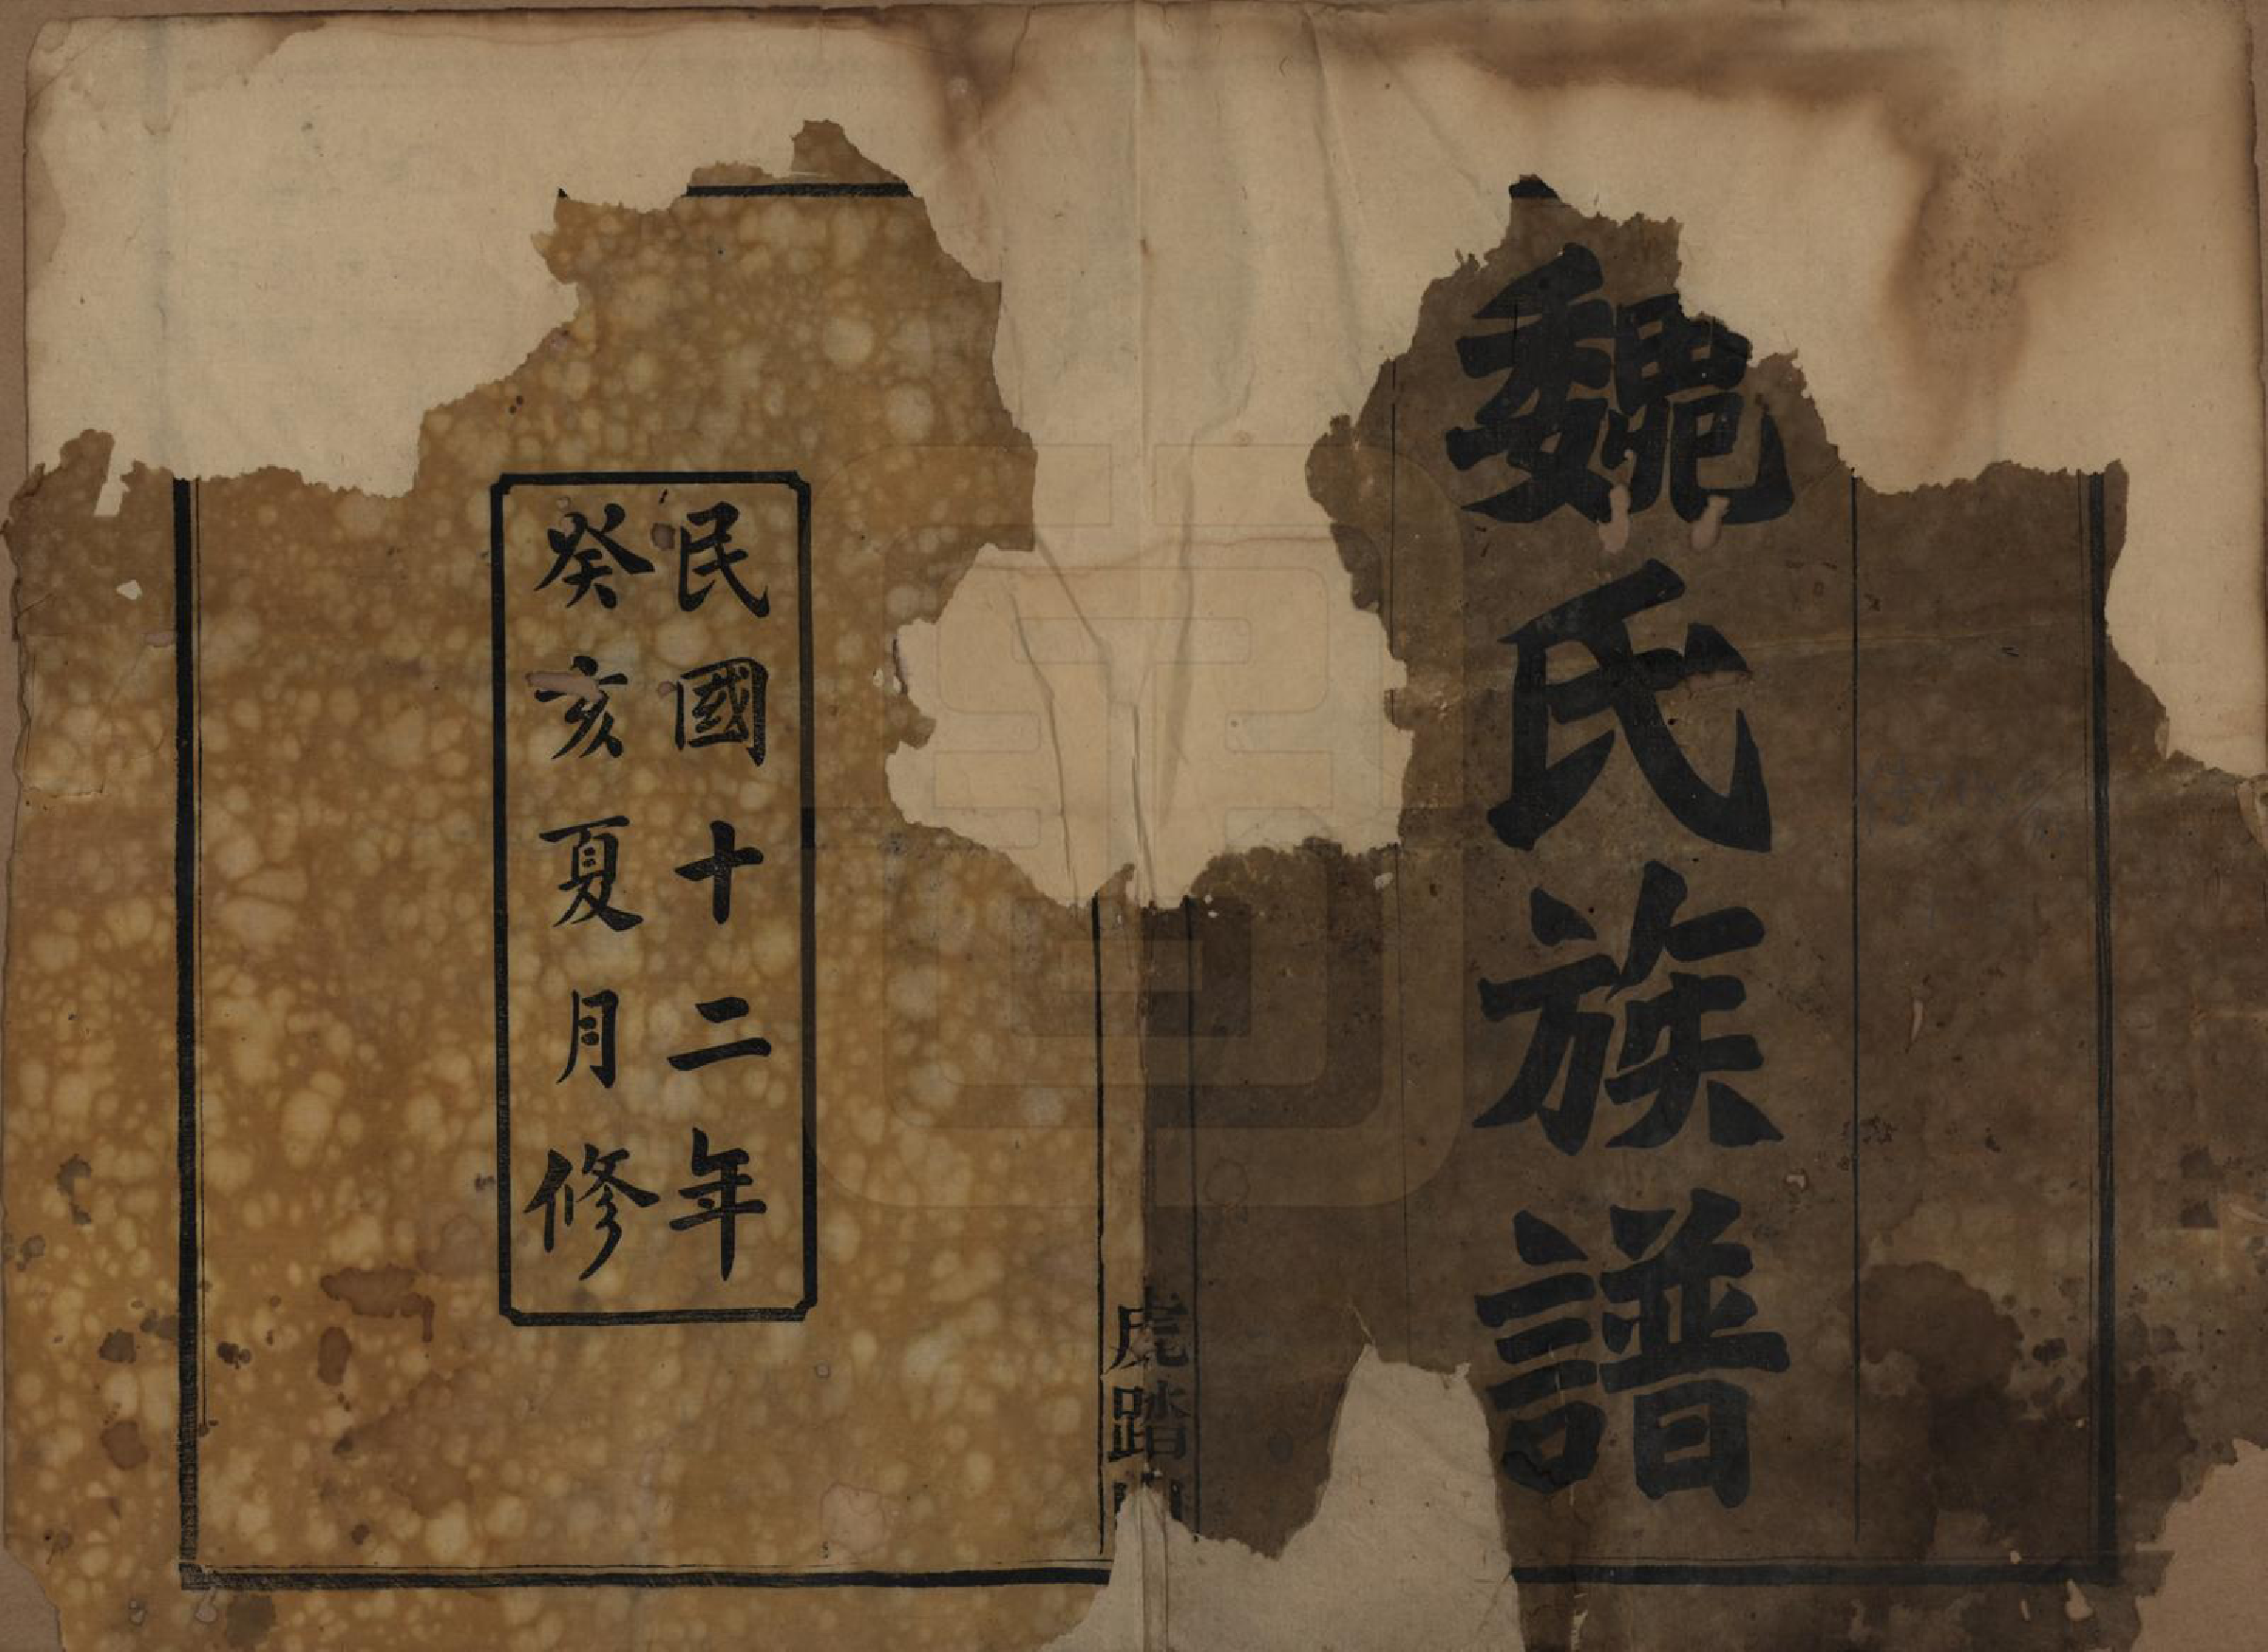 魏氏族譜
虎踏
民國十二年
癸亥夏月修